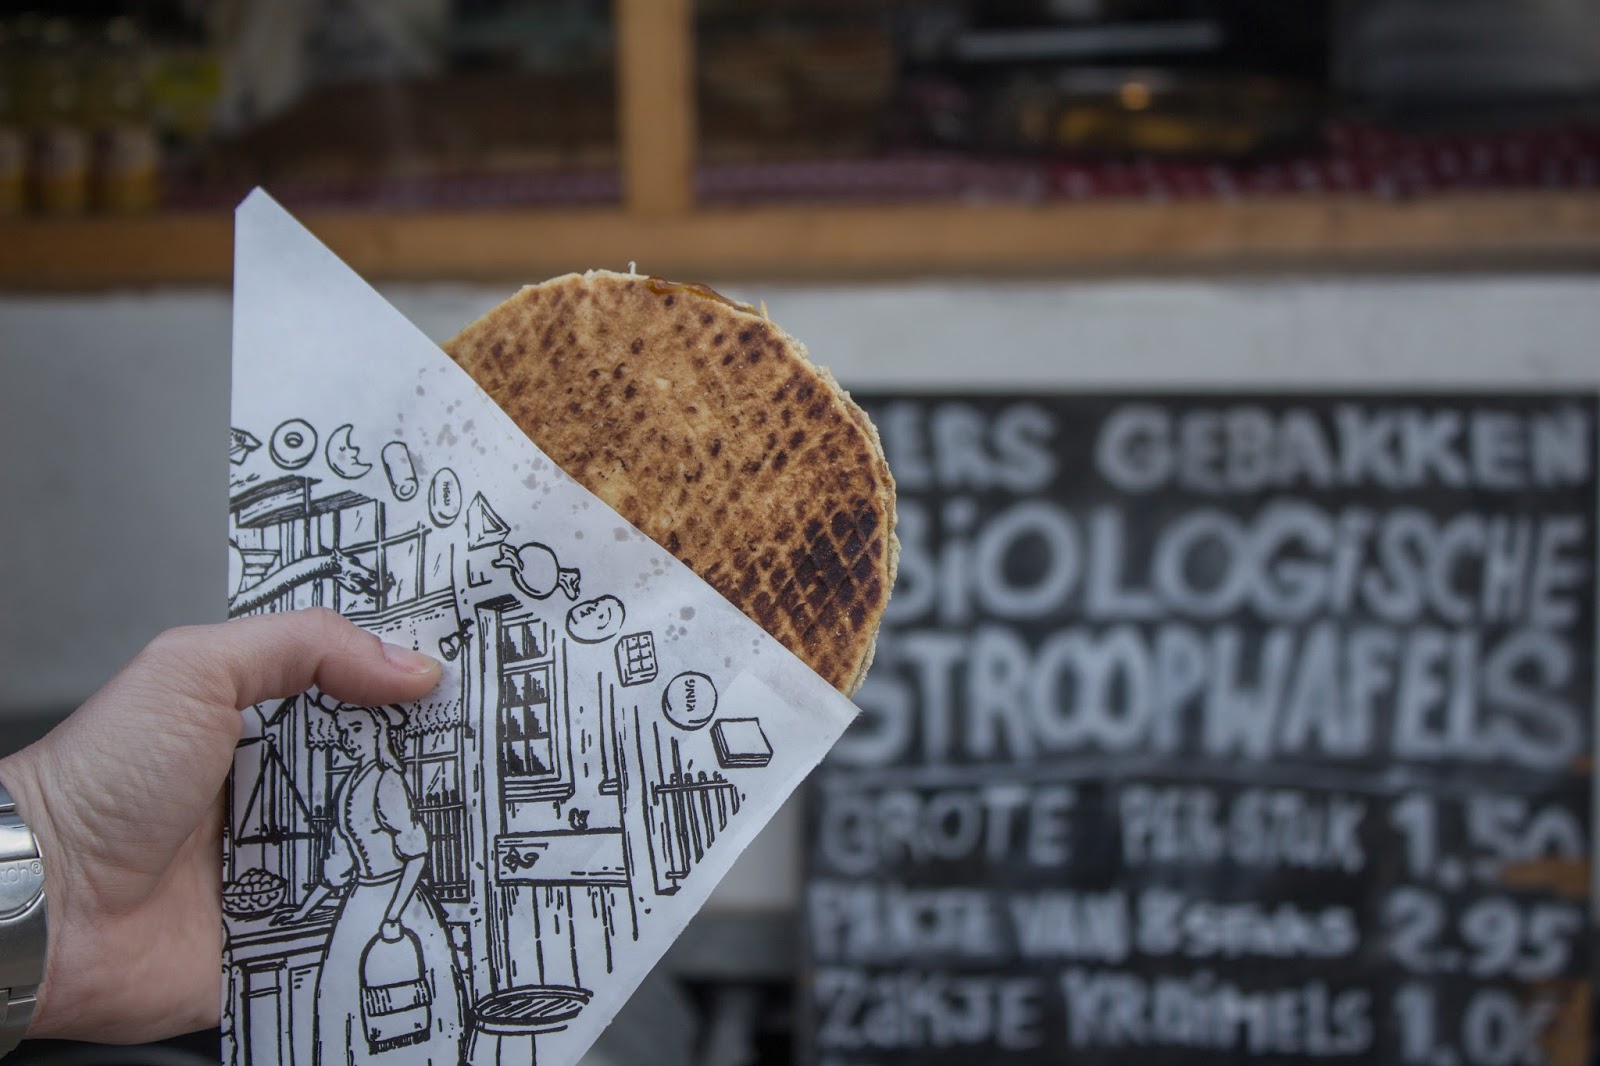 ERS GEBAKKEN
BiOLOGiSCHE
STROOPWAFELS
GROTE PER STUK 1.50
PAKJE VAN STUKS 2.95
ZAKJE KRUIMELS
KING
tch®